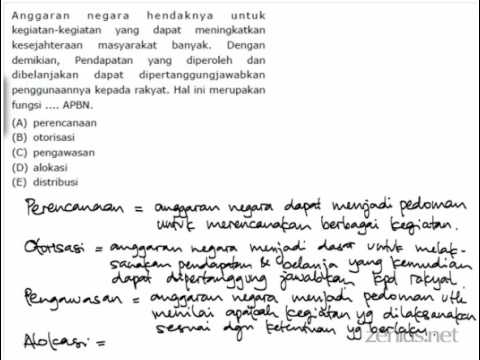 Anggaran negara hendaknya untuk
kegiatan-kegiatan yang dapat meningkatkan
kesejahteraan masyarakat banyak. Dengan
demikian, Pendapatan yang diperoleh dan
dibelanjakan dapat dipertanggungjawabkan
penggunaannya kepada rakyat. Hal ini merupakan
fungsi .... APBN.
(A) perencanaan
(B) otorisasi
(C) pengawasan
(D) alokasi
(E) distribusi
Perencanaan = anggaran negara dapat menjadi pedoman
untuk merencanakan berbagai kegiatan.
Otorisasi = anggaran negara menjadi dasar untuk melak-
sanakan pendapatan & belanja yang kemudian
dapat dipertanggung jawabkan kpd rakyat.
Pengawasan = anggaran negara menjadi pedoman utk
menilai apakah kegiatan yg dilaksanakan
sesuai dgn ketentuan yg berlaku
Alokasi =
zenius.net